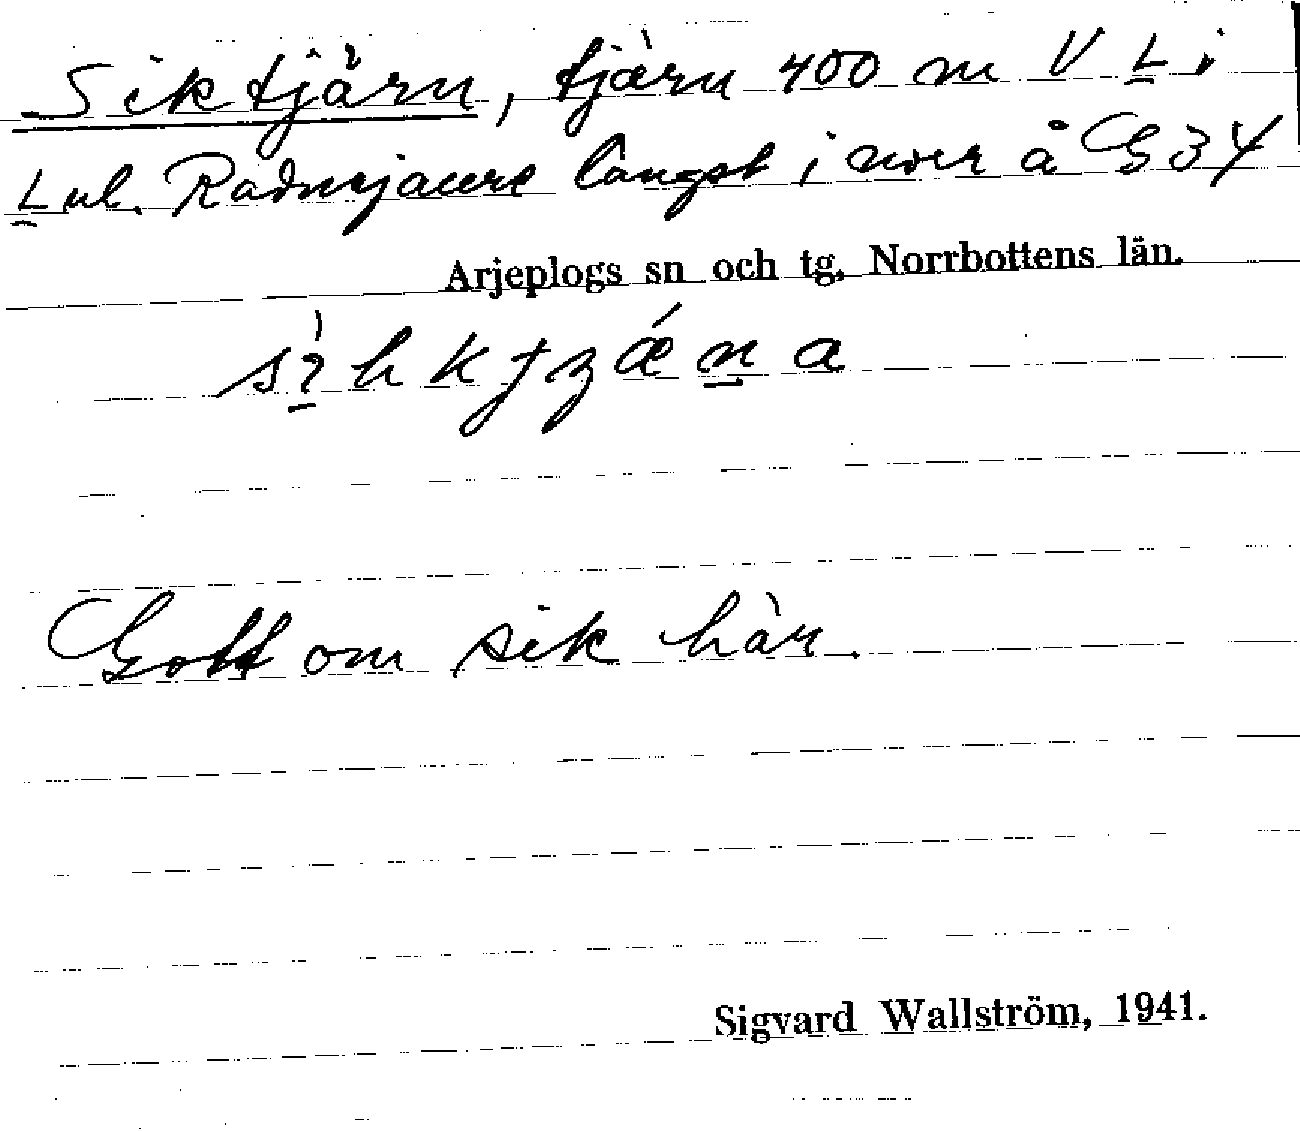 Siktjärn, tjärn 400 m V L i
L ul. Radnejaure längst i norr å G 34
Arjeplogs sn och tg, Norrbottens län.
Gott om sik här.
Sigvard Wallström, 1941.